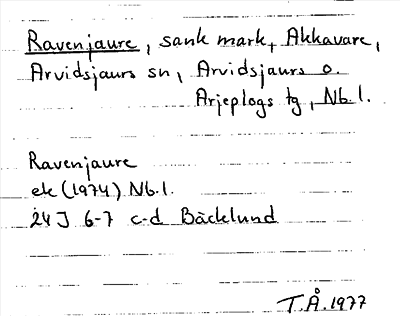 Ravenjaure, sank mark, Akkavare,
Arvidsjaurs sn, Arvidsjaurs o.
Arjeplogs tg, Nb.l.
Ravenjaure
ek (1974) Nb.l.
24J 6-7 c-d Bäcklund
T.Å. 1977